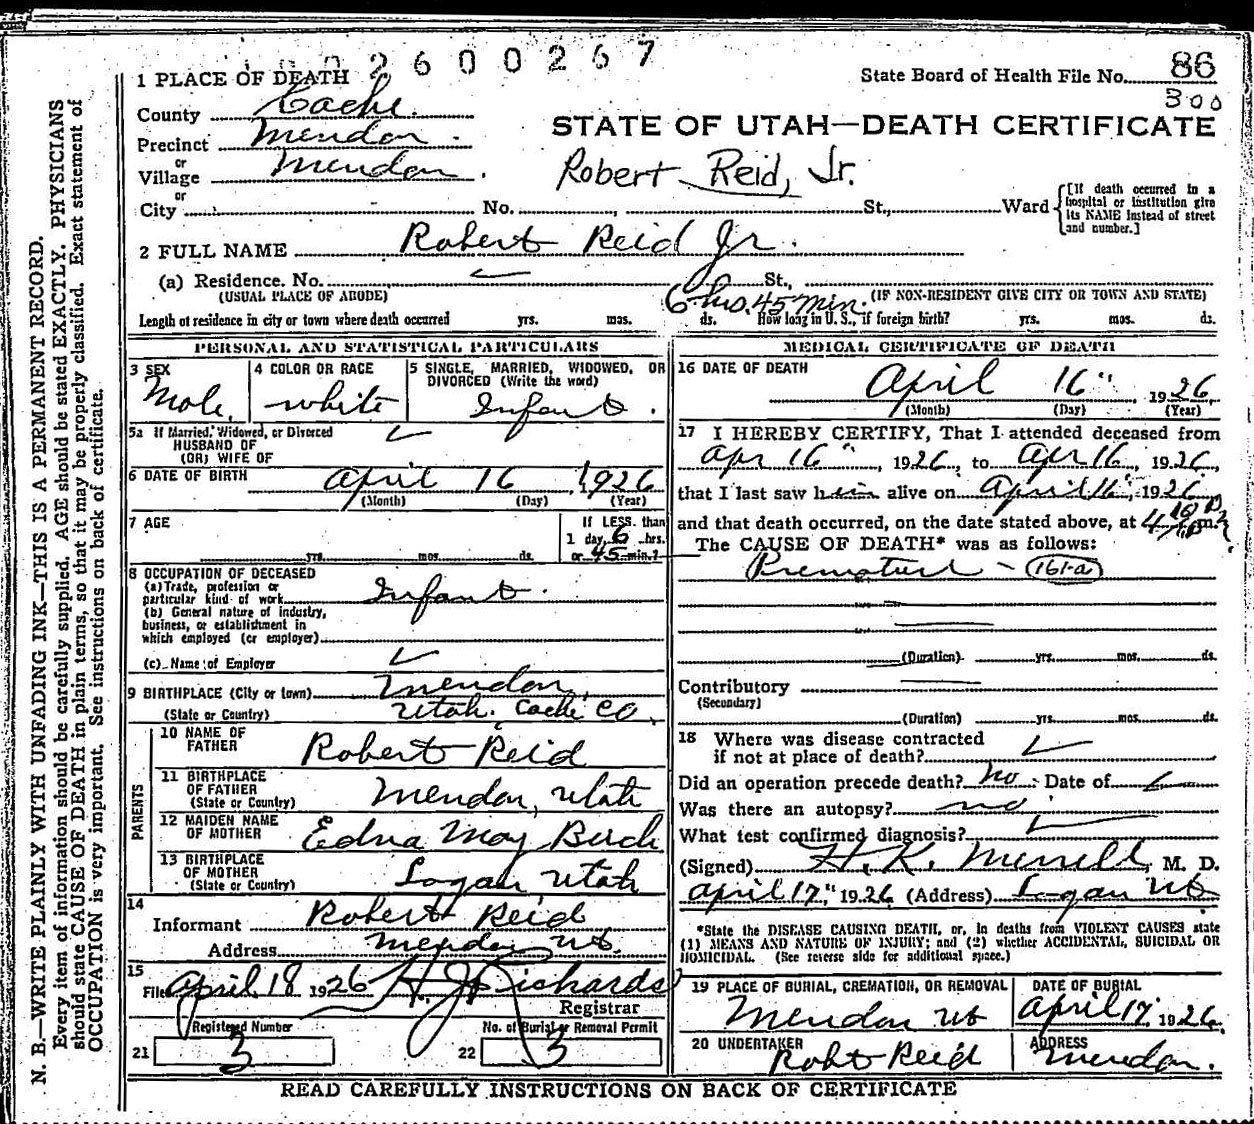 2600267
1 PLACE OF DEATH
State Board of Health File No. 86
300
County Cache.
STATE OF UTAH—DEATH CERTIFICATE
Precinct Mendon.
or
Village Mendon.
Robert Reid, Jr.
or
City No. , St., Ward
[If death occurred in a hospital or institution give its NAME instead of street and number.]
2 FULL NAME Robert Reid Jr.
(a) Residence. No. St.,
(USUAL PLACE OF ABODE)
(IF NON-RESIDENT GIVE CITY OR TOWN AND STATE)
6 hrs. 45 min.
Length of residence in city or town where death occurred yrs. mos. ds. How long in U. S., if foreign birth? yrs. mos. ds.
PERSONAL AND STATISTICAL PARTICULARS
3 SEX
Male.
4 COLOR OR RACE
white
5 SINGLE, MARRIED, WIDOWED, OR DIVORCED (Write the word)
Infant.
5a If Married, Widowed, or Divorced
HUSBAND OF
(OR) WIFE OF
6 DATE OF BIRTH April 16 1926
(Month) (Day) (Year)
7 AGE
yrs. mos. ds.
If LESS than
1 day 6 hrs.
or 45 min.?
8 OCCUPATION OF DECEASED
(a) Trade, profession or
particular kind of work Infant.
(b) General nature of industry,
business, or establishment in
which employed (or employer)
(c) Name of Employer
9 BIRTHPLACE (City or town) Mendon,
(State or Country) Utah. Cache Co.
PARENTS
10 NAME OF FATHER Robert Reid
11 BIRTHPLACE OF FATHER
(State or Country) Mendon, Utah
12 MAIDEN NAME OF MOTHER Edna May Birch
13 BIRTHPLACE OF MOTHER
(State or Country) Logan Utah
14
Informant Robert Reid
Address Mendon Ut.
15
Filed April 18 1926 H. J. Richards
Registrar
Registered Number
21 3
No. of Burial or Removal Permit
22 3
MEDICAL CERTIFICATE OF DEATH
16 DATE OF DEATH
April 16" 1926
(Month) (Day) (Year)
17 I HEREBY CERTIFY, That I attended deceased from
Apr 16", 1926, to Apr 16, 1926,
that I last saw him alive on April 16", 1926
and that death occurred, on the date stated above, at 4 m.
The CAUSE OF DEATH* was as follows:
Premature - 161-a
(Duration) yrs. mos. ds.
Contributory
(Secondary)
(Duration) yrs. mos. ds.
18 Where was disease contracted
if not at place of death?
Did an operation precede death? No. Date of
Was there an autopsy? no
What test confirmed diagnosis?
(Signed) H. K. Merrill, M. D.
April 17", 1926 (Address) Logan Ut
*State the DISEASE CAUSING DEATH, or, in deaths from VIOLENT CAUSES state
(1) MEANS AND NATURE OF INJURY; and (2) whether ACCIDENTAL, SUICIDAL OR
HOMICIDAL. (See reverse side for additional space.)
19 PLACE OF BURIAL, CREMATION, OR REMOVAL
Mendon Ut
DATE OF BURIAL
April 17, 1926.
20 UNDERTAKER
Robt Reid
ADDRESS
Mendon.
READ CAREFULLY INSTRUCTIONS ON BACK OF CERTIFICATE
N. B.—WRITE PLAINLY WITH UNFADING INK—THIS IS A PERMANENT RECORD.
Every item of information should be carefully supplied. AGE should be stated EXACTLY. PHYSICIANS
should state CAUSE OF DEATH in plain terms, so that it may be properly classified. Exact statement of
OCCUPATION is very important. See instructions on back of certificate.